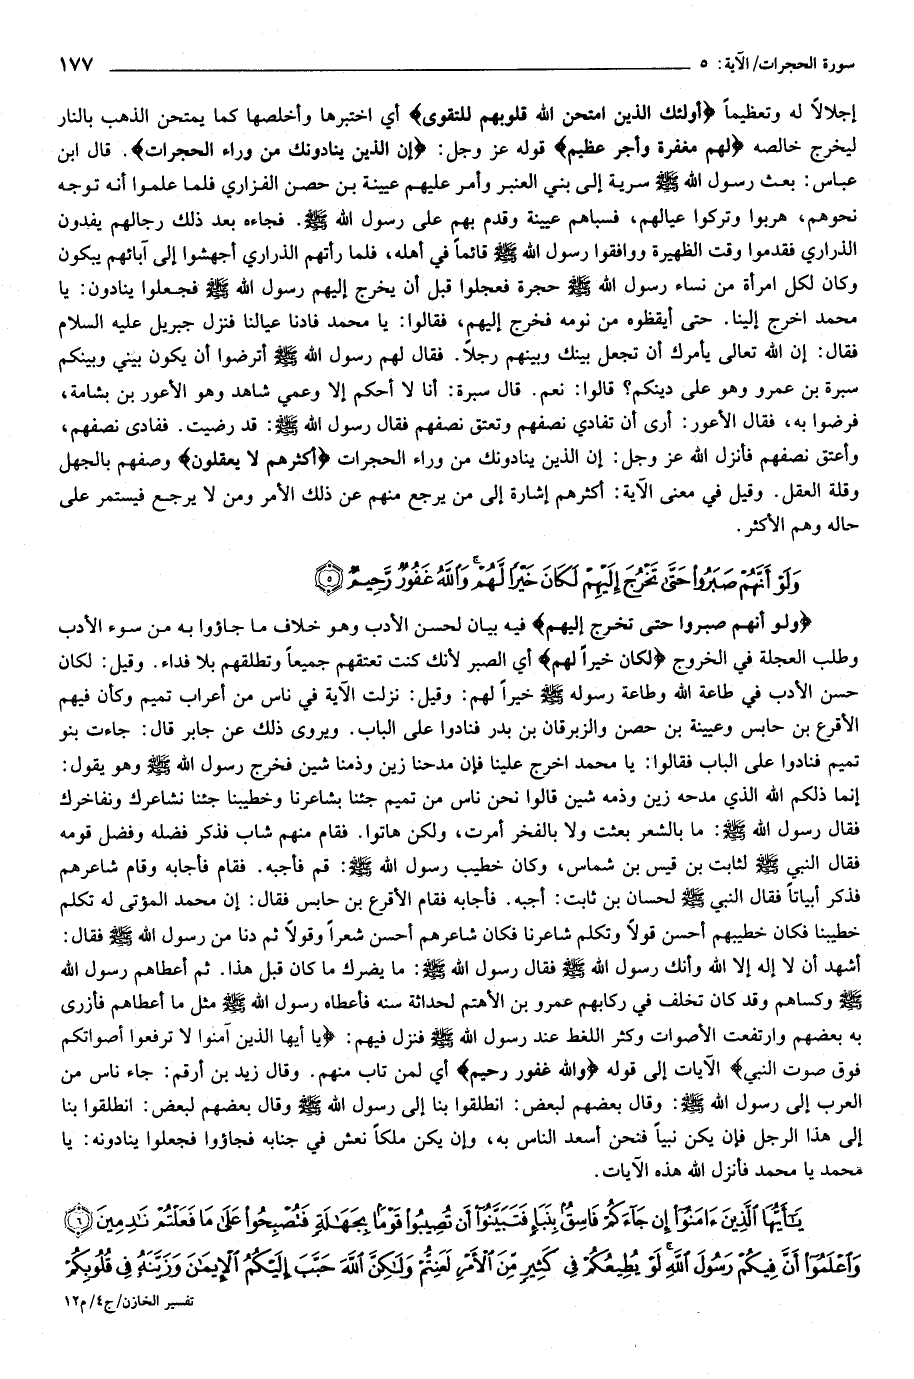 سورة الحجرات/ الآية: ٥ ١٧٧
إجلالاً له وتعظيماً ﴿أولئك الذين امتحن الله قلوبهم للتقوى﴾ أي اختبرها وأخلصها كما يمتحن الذهب بالنار
ليخرج خالصه ﴿لهم مغفرة وأجر عظيم﴾ قوله عز وجل: ﴿إن الذين ينادونك من وراء الحجرات﴾. قال ابن
عباس: بعث رسول الله ﷺ سرية إلى بني العنبر وأمر عليهم عيينة بن حصن الفزاري فلما علموا أنه توجه
نحوهم، هربوا وتركوا عيالهم، فسباهم عيينة وقدم بهم على رسول الله ﷺ. فجاءه بعد ذلك رجالهم يفدون
الذراري فقدموا وقت الظهيرة ووافقوا رسول الله ﷺ قائماً في أهله، فلما رأتهم الذراري أجهشوا إلى آبائهم يبكون
وكان لكل امرأة من نساء رسول الله ﷺ حجرة فعجلوا قبل أن يخرج إليهم رسول الله ﷺ فجعلوا ينادون: يا
محمد اخرج إلينا. حتى أيقظوه من نومه فخرج إليهم، فقالوا: يا محمد فادنا عيالنا فنزل جبريل عليه السلام
فقال: إن الله تعالى يأمرك أن تجعل بينك وبينهم رجلاً. فقال لهم رسول الله ﷺ أترضوا أن يكون بيني وبينكم
سبرة بن عمرو وهو على دينكم؟ قالوا: نعم. قال سبرة: أنا لا أحكم إلا وعمي شاهد وهو الأعور بن بشامة،
فرضوا به، فقال الأعور: أرى أن تفادي نصفهم وتعتق نصفهم فقال رسول الله ﷺ: قد رضيت. ففادى نصفهم،
وأعتق نصفهم فأنزل الله عز وجل: إن الذين ينادونك من وراء الحجرات ﴿أكثرهم لا يعقلون﴾ وصفهم بالجهل
وقلة العقل. وقيل في معنى الآية: أكثرهم إشارة إلى من يرجع منهم عن ذلك الأمر ومن لا يرجع فيستمر على
حاله وهم الأكثر.
وَلَوْ أَنَّهُمْ صَبَرُوا حَتَّىٰ تَخْرُجَ إِلَيْهِمْ لَكَانَ خَيْرًا لَّهُمْ ۚ وَاللَّهُ غَفُورٌ رَّحِيمٌ ⟨٥⟩
﴿ولو أنهم صبروا حتى تخرج إليهم﴾ فيه بيان لحسن الأدب وهو خلاف ما جاؤوا به من سوء الأدب
وطلب العجلة في الخروج ﴿لكان خيراً لهم﴾ أي الصبر لأنك كنت تعتقهم جميعاً وتطلقهم بلا فداء. وقيل: لكان
حسن الأدب في طاعة الله وطاعة رسوله ﷺ خيراً لهم: وقيل: نزلت الآية في ناس من أعراب تميم وكأن فيهم
الأقرع بن حابس وعيينة بن حصن والزبرقان بن بدر فنادوا على الباب. ويروى ذلك عن جابر قال: جاءت بنو
تميم فنادوا على الباب فقالوا: يا محمد اخرج علينا فإن مدحنا زين وذمنا شين فخرج رسول الله ﷺ وهو يقول:
إنما ذلكم الله الذي مدحه زين وذمه شين قالوا نحن ناس من تميم جئنا بشاعرنا وخطيبنا جئنا نشاعرك ونفاخرك
فقال رسول الله ﷺ: ما بالشعر بعثت ولا بالفخر أمرت، ولكن هاتوا. فقام منهم شاب فذكر فضله وفضل قومه
فقال النبي ﷺ لثابت بن قيس بن شماس، وكان خطيب رسول الله ﷺ: قم فأجبه. فقام فأجابه وقام شاعرهم
فذكر أبياتاً فقال النبي ﷺ لحسان بن ثابت: أجبه. فأجابه فقام الأقرع بن حابس فقال: إن محمد المؤتى له تكلم
خطيبنا فكان خطيبهم أحسن قولاً وتكلم شاعرنا فكان شاعرهم أحسن شعراً وقولاً ثم دنا من رسول الله ﷺ فقال:
أشهد أن لا إله إلا الله وأنك رسول الله ﷺ فقال رسول الله ﷺ: ما يضرك ما كان قبل هذا. ثم أعطاهم رسول الله
ﷺ وكساهم وقد كان تخلف في ركابهم عمرو بن الأهتم لحداثة سنه فأعطاه رسول الله ﷺ مثل ما أعطاهم فأزرى
به بعضهم وارتفعت الأصوات وكثر اللغط عند رسول الله ﷺ فنزل فيهم: ﴿يا أيها الذين آمنوا لا ترفعوا أصواتكم
فوق صوت النبي﴾ الآيات إلى قوله ﴿والله غفور رحيم﴾ أي لمن تاب منهم. وقال زيد بن أرقم: جاء ناس من
العرب إلى رسول الله ﷺ: وقال بعضهم لبعض: انطلقوا بنا إلى رسول الله ﷺ وقال بعضهم لبعض: انطلقوا بنا
إلى هذا الرجل فإن يكن نبياً فنحن أسعد الناس به، وإن يكن ملكاً نعش في جنابه فجاؤوا فجعلوا ينادونه: يا
محمد يا محمد فأنزل الله هذه الآيات.
يَٰٓأَيُّهَا الَّذِينَ ءَامَنُوٓا إِن جَآءَكُمْ فَاسِقٌۢ بِنَبَإٍ فَتَبَيَّنُوٓا أَن تُصِيبُوا قَوْمًۢا بِجَهَٰلَةٍ فَتُصْبِحُوا عَلَىٰ مَا فَعَلْتُمْ نَٰدِمِينَ ⟨٦⟩
وَاعْلَمُوٓا أَنَّ فِيكُمْ رَسُولَ اللَّهِ ۚ لَوْ يُطِيعُكُمْ فِى كَثِيرٍ مِّنَ الْأَمْرِ لَعَنِتُّمْ وَلَٰكِنَّ اللَّهَ حَبَّبَ إِلَيْكُمُ الْإِيمَٰنَ وَزَيَّنَهُۥ فِى قُلُوبِكُمْ
تفسير الخازن/ ج٤/ م١٢